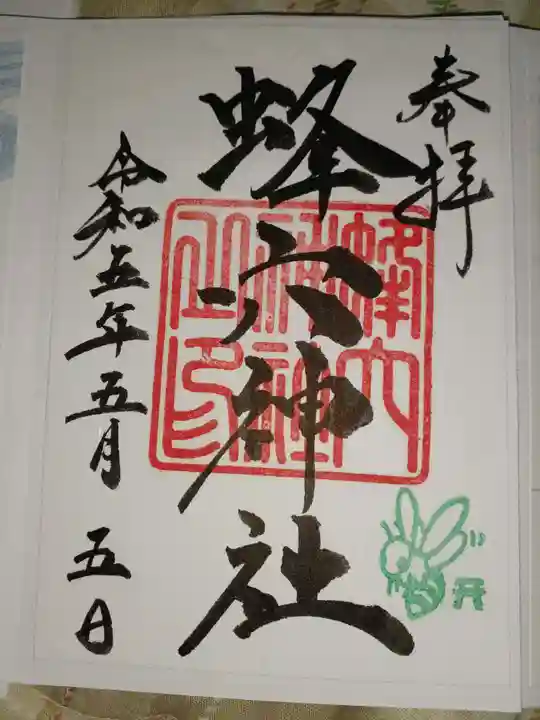 奉拝
蜂穴神社
蜂穴
神社
令和五年五月五日